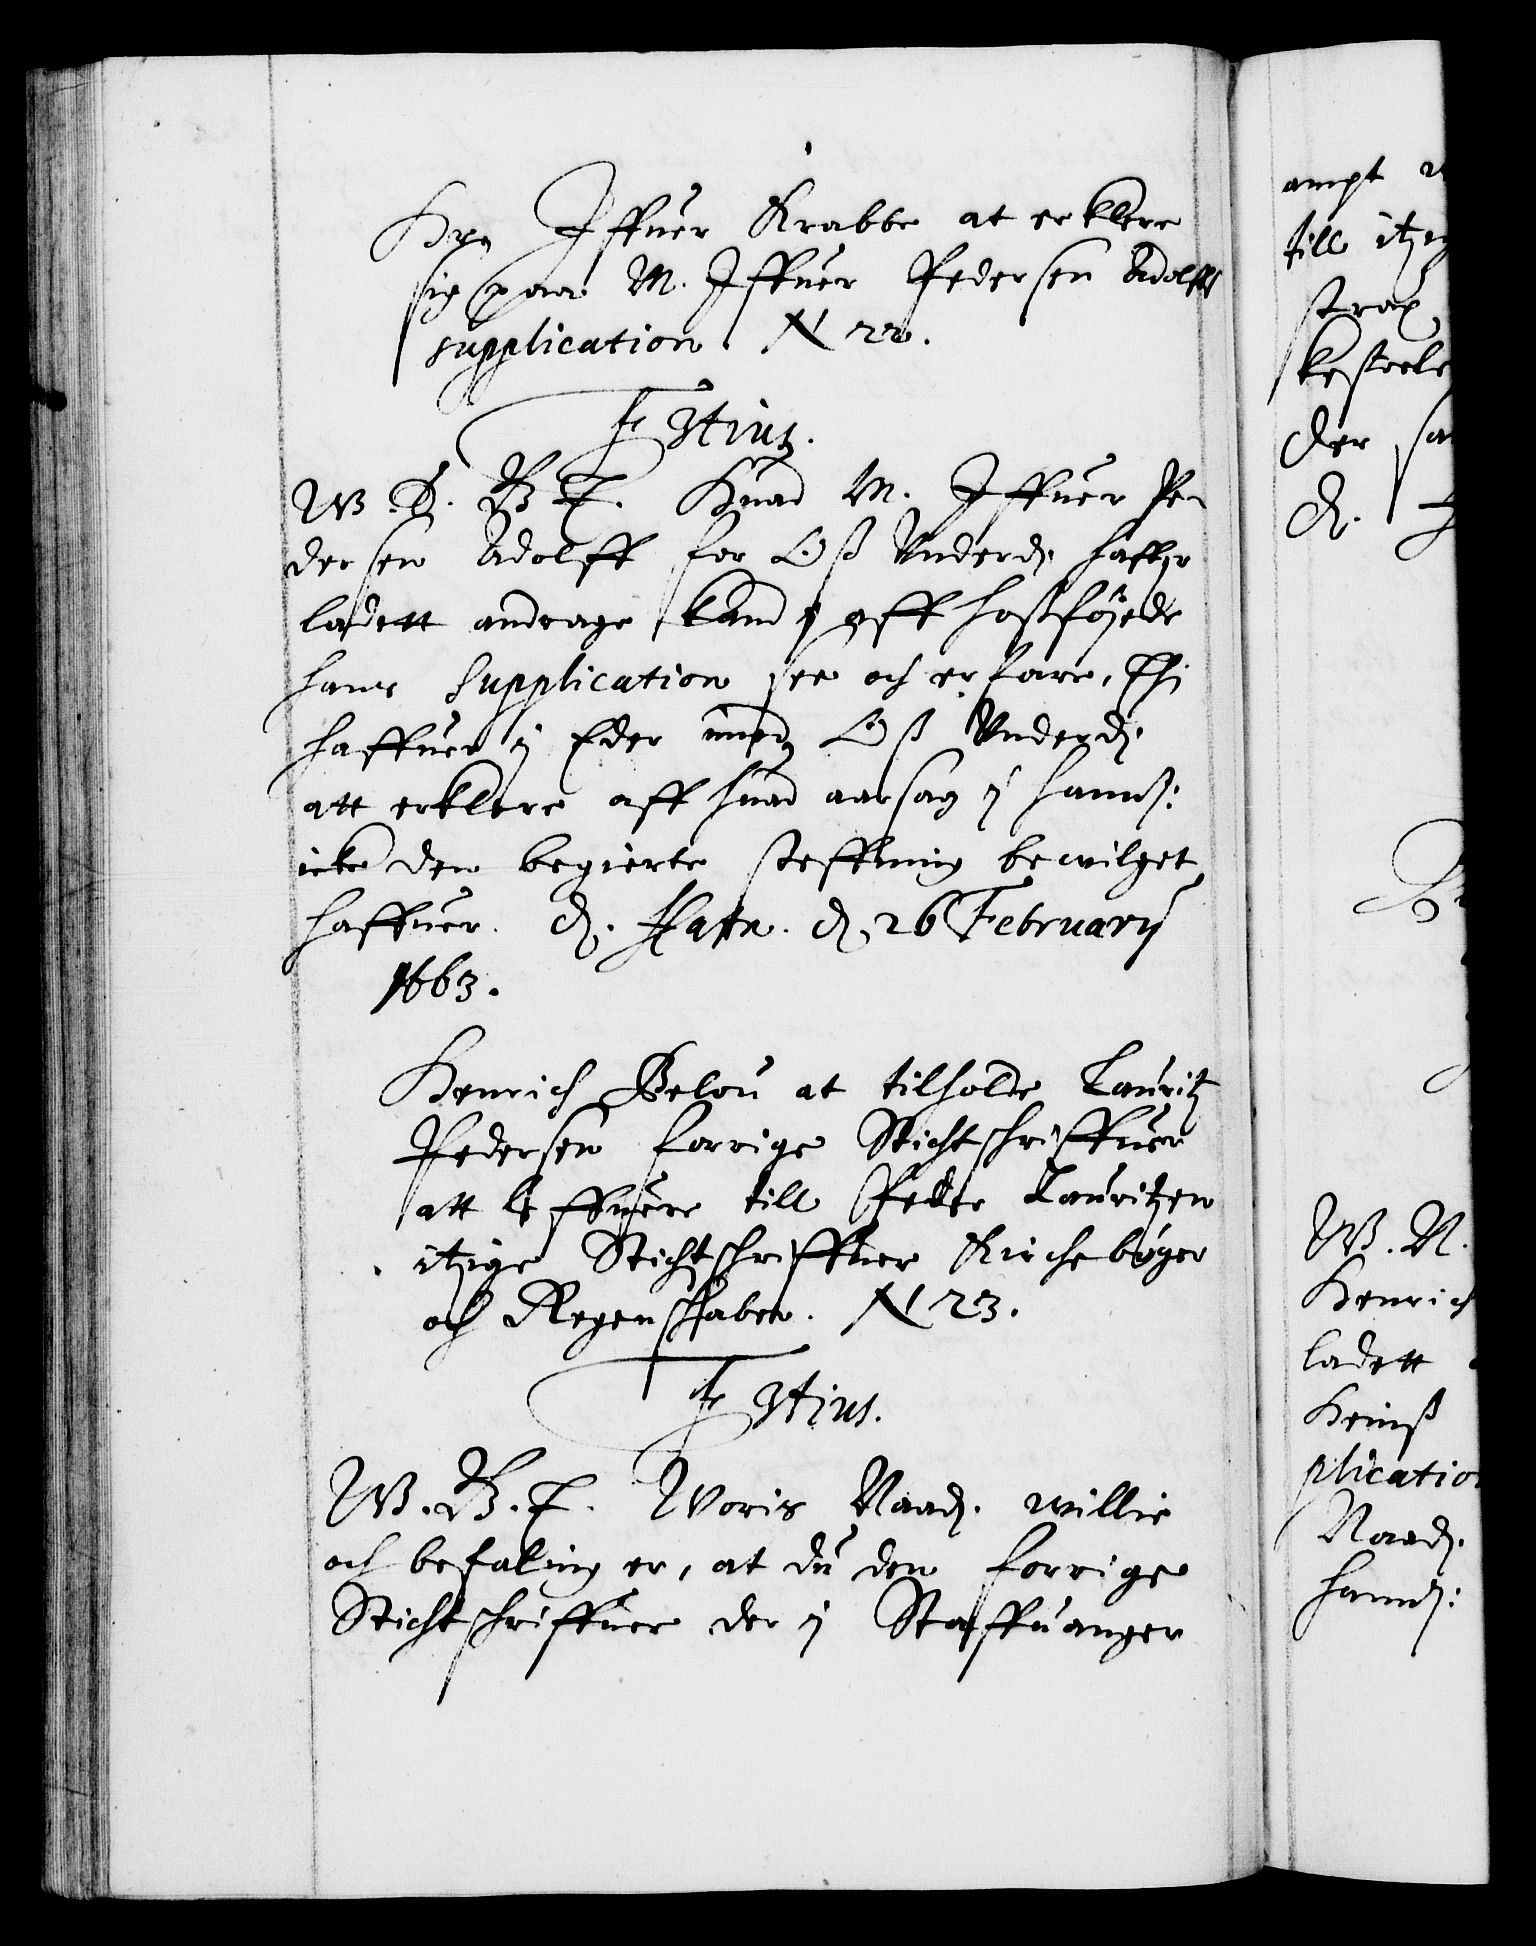 Her Iffuer Krabbe at erklere
sig paa M. Iffuer Pedersen Adolffs
supplication N 22.
F 3tius.
W B. B T. Huad M. Iffuer Pe-
dersen Adolff for Oß Vnderd: haffr
ladett andrage kand i aff hoßføyede
hans Supplication see och erfare, Thi
haffuer i Eder imod Oß Vnderd:
att erklere aff huad aarsag i hannd:
icke den begierte steffning bewilget
haffuer. d. Hafn. d. 26 February
1663.
Henrich Belou at tilholde Lauritz
Pedersen forrige Stichtschriffuer
att leffuere till Peder Lauritzen
itzige Stichtschriffuer Kirchebøger
och Regenschaber. N 23.
F 3tius.
W. B. T. Woris Naad. willie
och befaling er, at du den forrige
Stichtschriffuer der i Staffuanger
ampt
till itzig
strax
der sa
W. N.
Henrich
ladett
plication
Naad.
hannd: